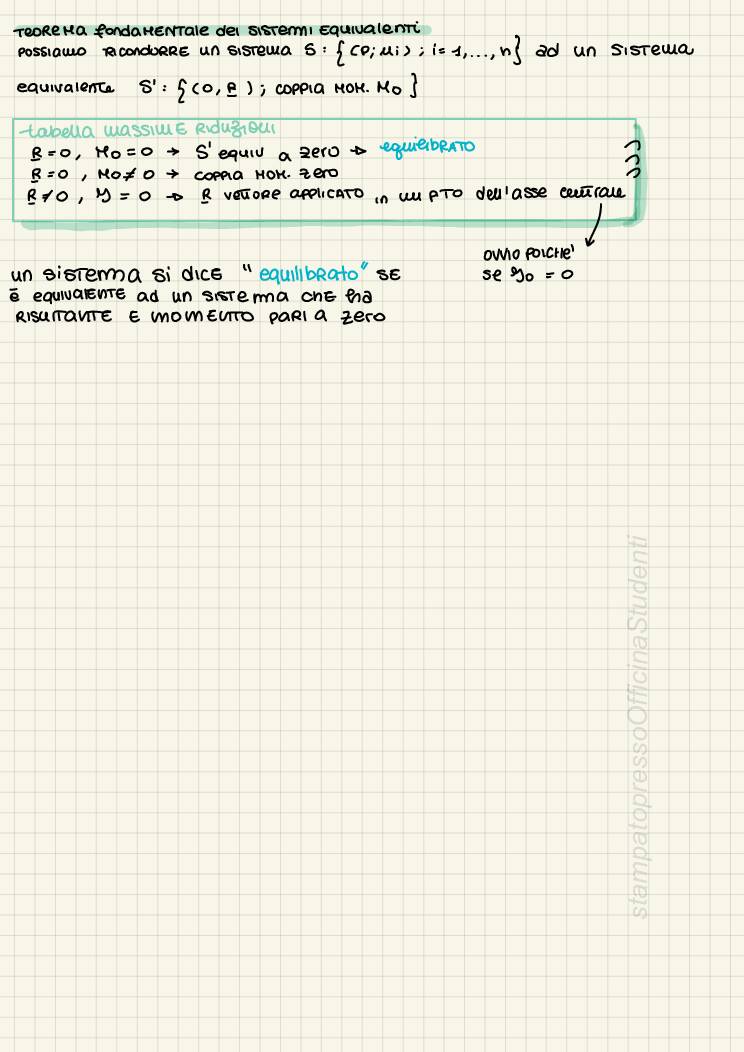 TEOREMA fondAMENTALE dei SISTEMI EQUIVALENTI
POSSIAMO RICONDURRE un SISTEMA S : { (P; ui) ; i = 1, ..., n } ad un SISTEMA
equivalente S' : { (O, R) ; COPPIA MOM. Mo }
tabella MASSIME RIDUZIONI
R = 0, Mo = 0 → S' equiv a zero → equilibrato
R = 0, Mo ≠ 0 → COPPIA MOM. zero
R ≠ 0, Y = 0 → R VETTORE APPLICATO in un PTO dell'asse centrale
ovvio poiche'
se Yo = 0
un sistema si dice "equilibrato" SE
è EQUIVALENTE ad un SISTEMA CHE ha
RISULTANTE E MOMENTO PARI A zero
stampatopressoOfficinaStudenti